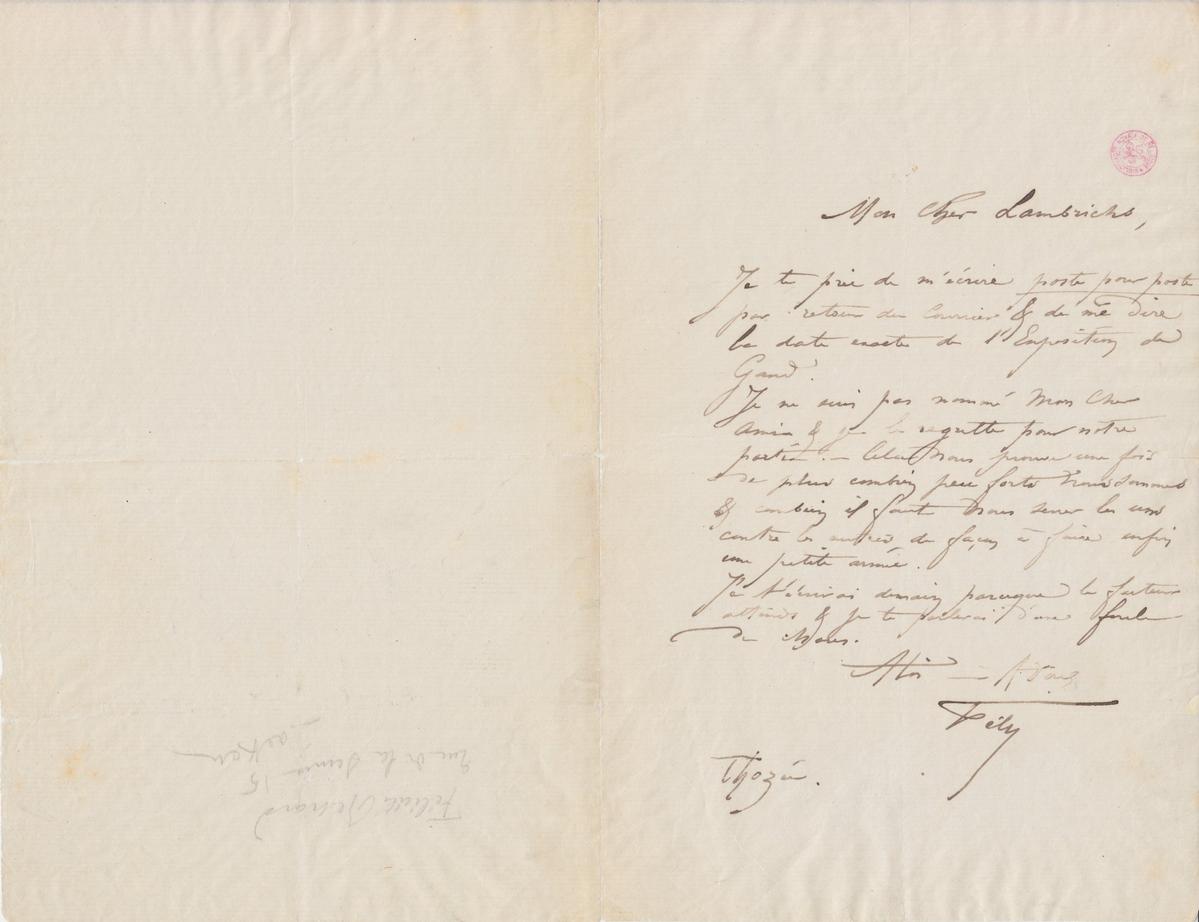 Mon Cher Lambrichs,
Je te prie de m'écrire poste pour poste
par retour du Courrier & de me dire
la date exacte de l'Exposition de
Gand.
Je ne suis pas nommé Mon Cher
Ami & je le regrette pour notre
parti. – Cela Nous prouve une fois
de plus combien peu forts Nous Sommes
& combien il faut Nous serrer les uns
contre les autres de façon à faire enfin
une petite armée.
Je t'écrirai demain parceque le facteur
attends & je te parlerai d'une foule
de choses.
A toi –
Fély
Thozée.
Rue de la Senne
15